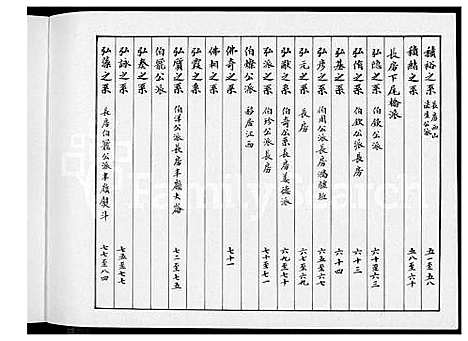 積裕之系 長房西山逵生公派 五一至五八
積結之系 五八至六十
長房下尾橋派
弘隐之系 伯欽公派 六十至六三
弘脩之系 伯欽公派長房 六十三
弘基之系 六十四
弘彦之系 伯周公派 六五至六七
弘元之系 長房 六七至六九
弘猷之系 伯奇公系長房姜德派 六九至七十
弘派之系 伯珍公派長房 七十至七一
伯燦公派 移居江西
佛奇之系 七十一
佛桐之系
弘霞之系
弘寳之系 伯洋公派長房半嶺大崙 七二至七五
伯寵公派
弘泰之系
弘詠之系 七五至七七
弘藻之系 長房伯寵公派半嶺熨斗 七七至八四
FamilySearch